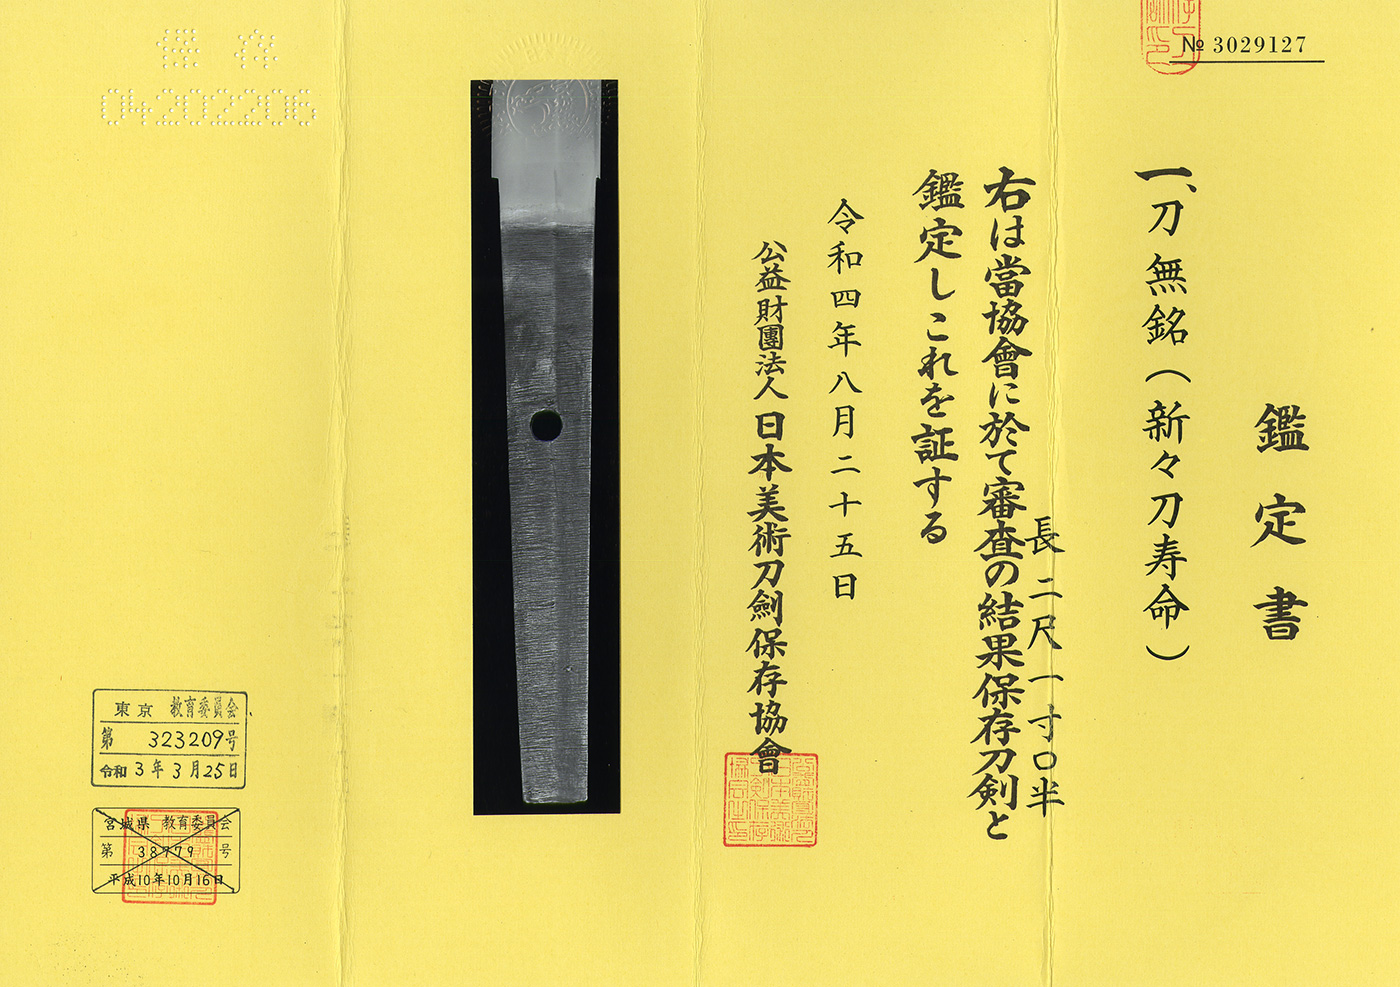 № 3029127
鑑定書
一、刀 無銘(新々刀寿命)
長 二尺一寸〇半
右は當協會に於て審査の結果保存刀剣と
鑑定しこれを証する
令和四年八月二十五日
公益財團法人 日本美術刀劍保存協會
保存
04202206
東京 教育委員会
第 323209号
令和 3年 3月 25日
宮城県 教育委員会
第 38979 号
平成10年10月16日